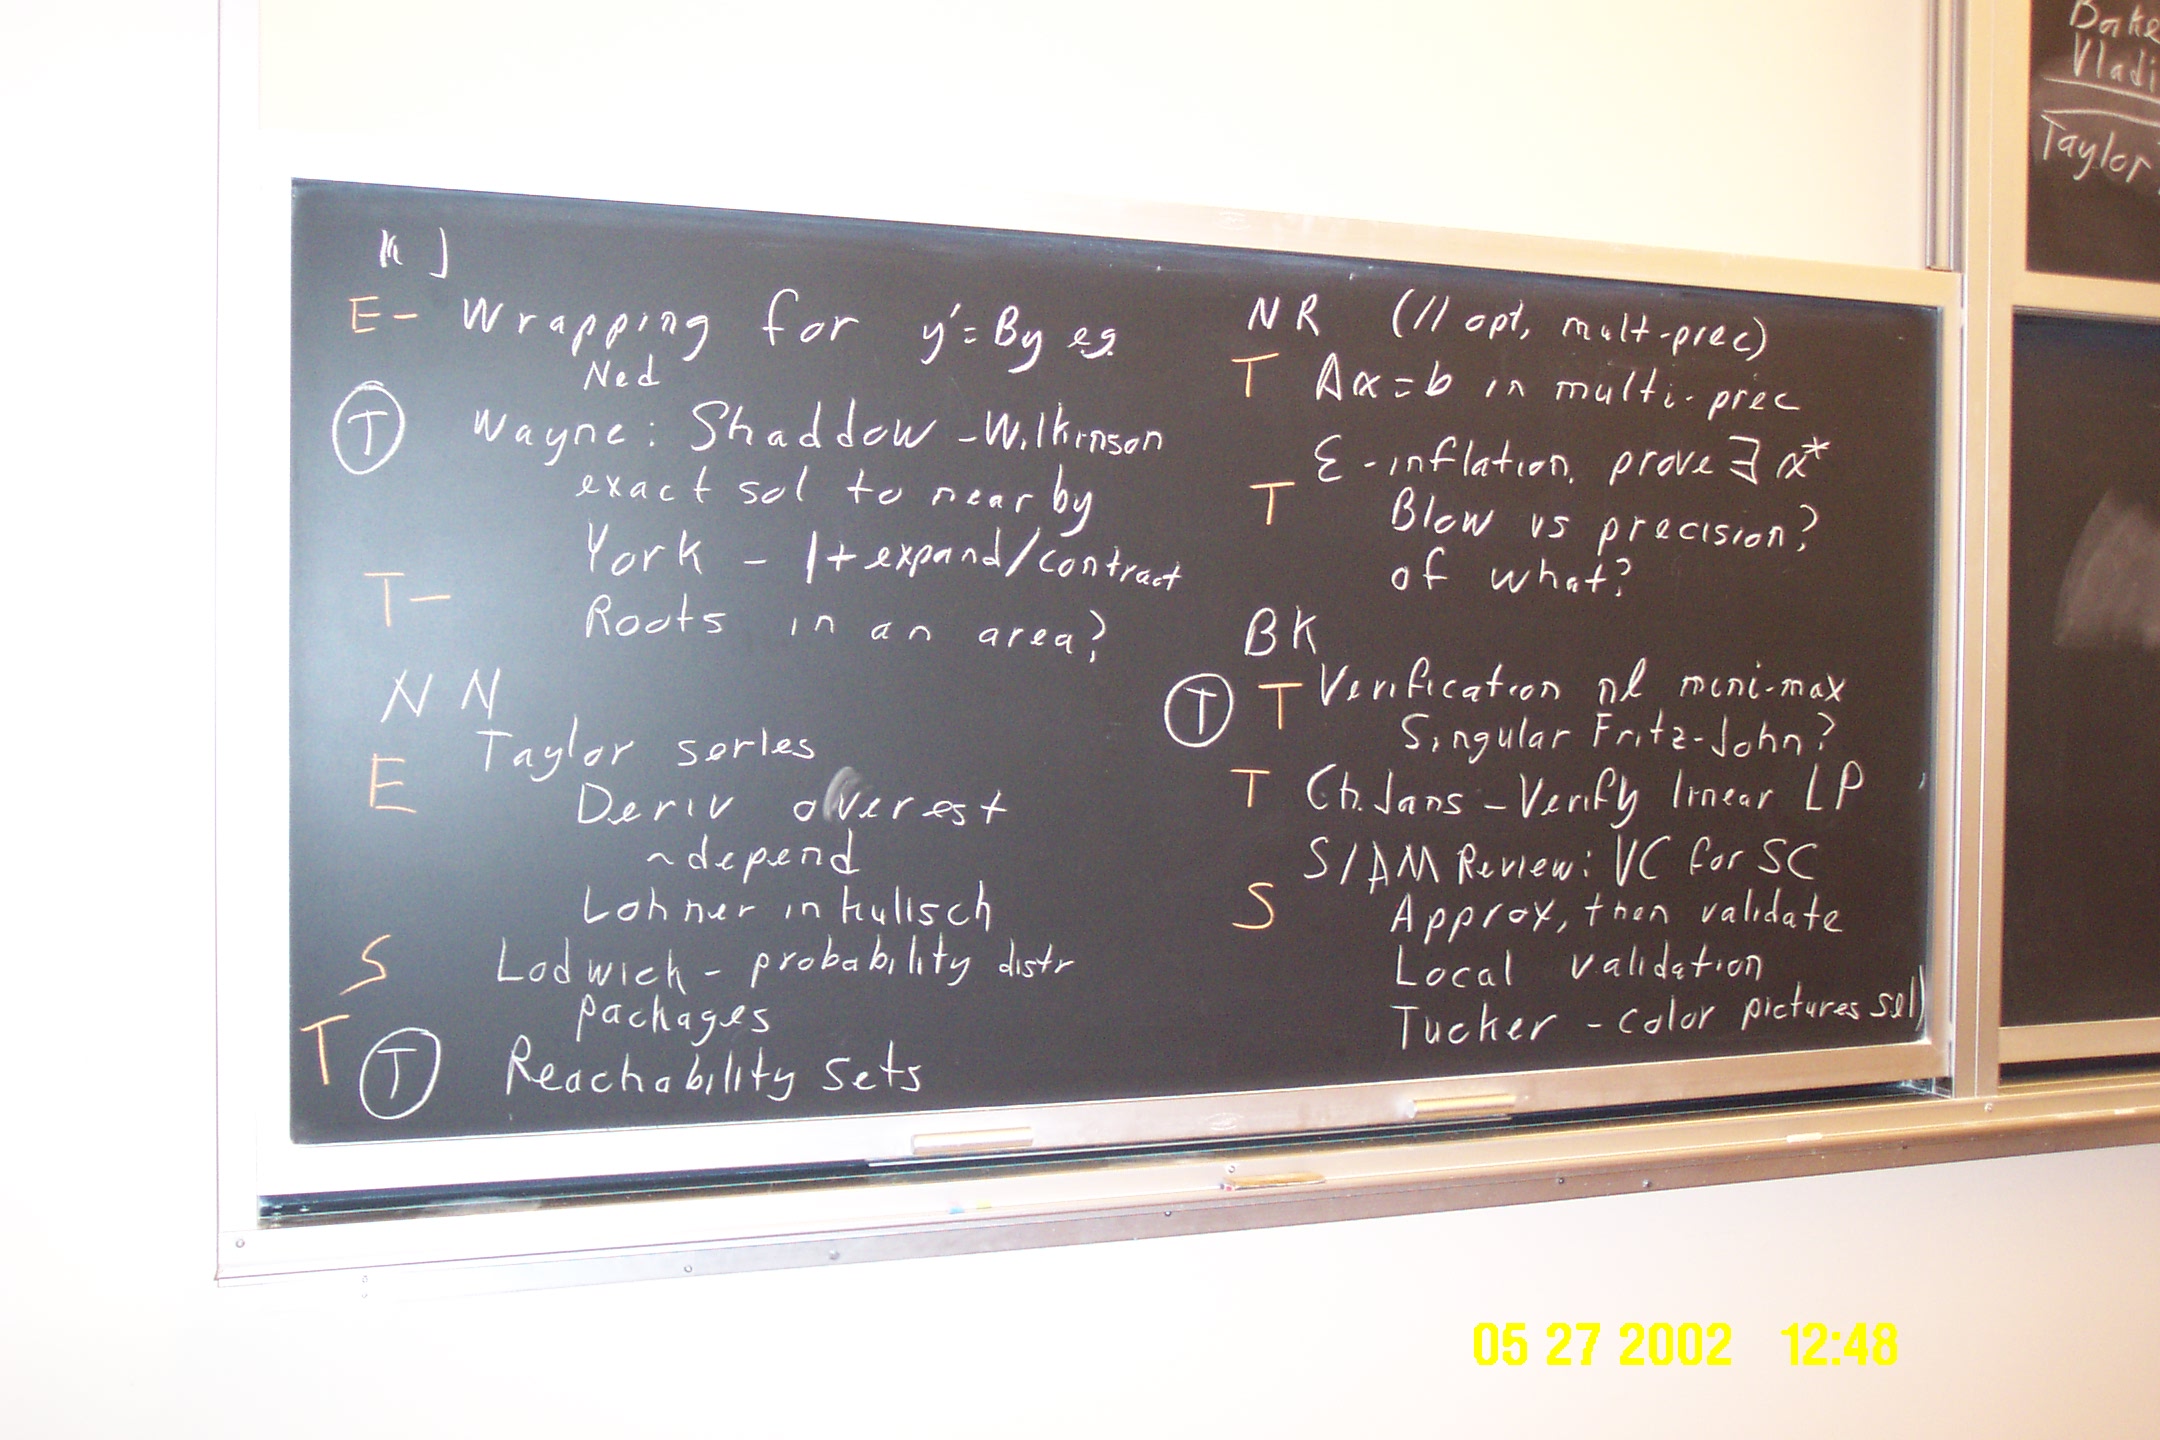 KJ
E- Wrapping for y'=By eg.
Ned
T Wayne: Shaddow -Wilkinson
exact sol to near by
York - 1+expand/contract
T-
Roots in an area?
NN
Taylor series
E
Deriv overest
~depend
Lohner in Kulisch
S Lodwick - probability distr
packages
T T Reachability sets
NR (// opt, mult-prec)
T Ax=b in multi-prec
ε-inflation, prove ∃ x*
T Blow vs precision?
of what?
BK
T T Verification nl mini-max
Singular Fritz-John?
T Ch. Jans - Verify linear LP
SIAM Review: VC for SC
S Approx, then validate
Local validation
Tucker - color pictures sell
Vladi
Taylor
05 27 2002 12:48